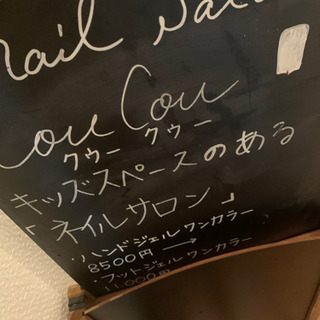 Nail Salon
Cou Cou
クゥー クゥー
キッズスペースのある
「ネイルサロン」
・ハンドジェルワンカラー
8500円 →
・フットジェルワンカラー
11,000円